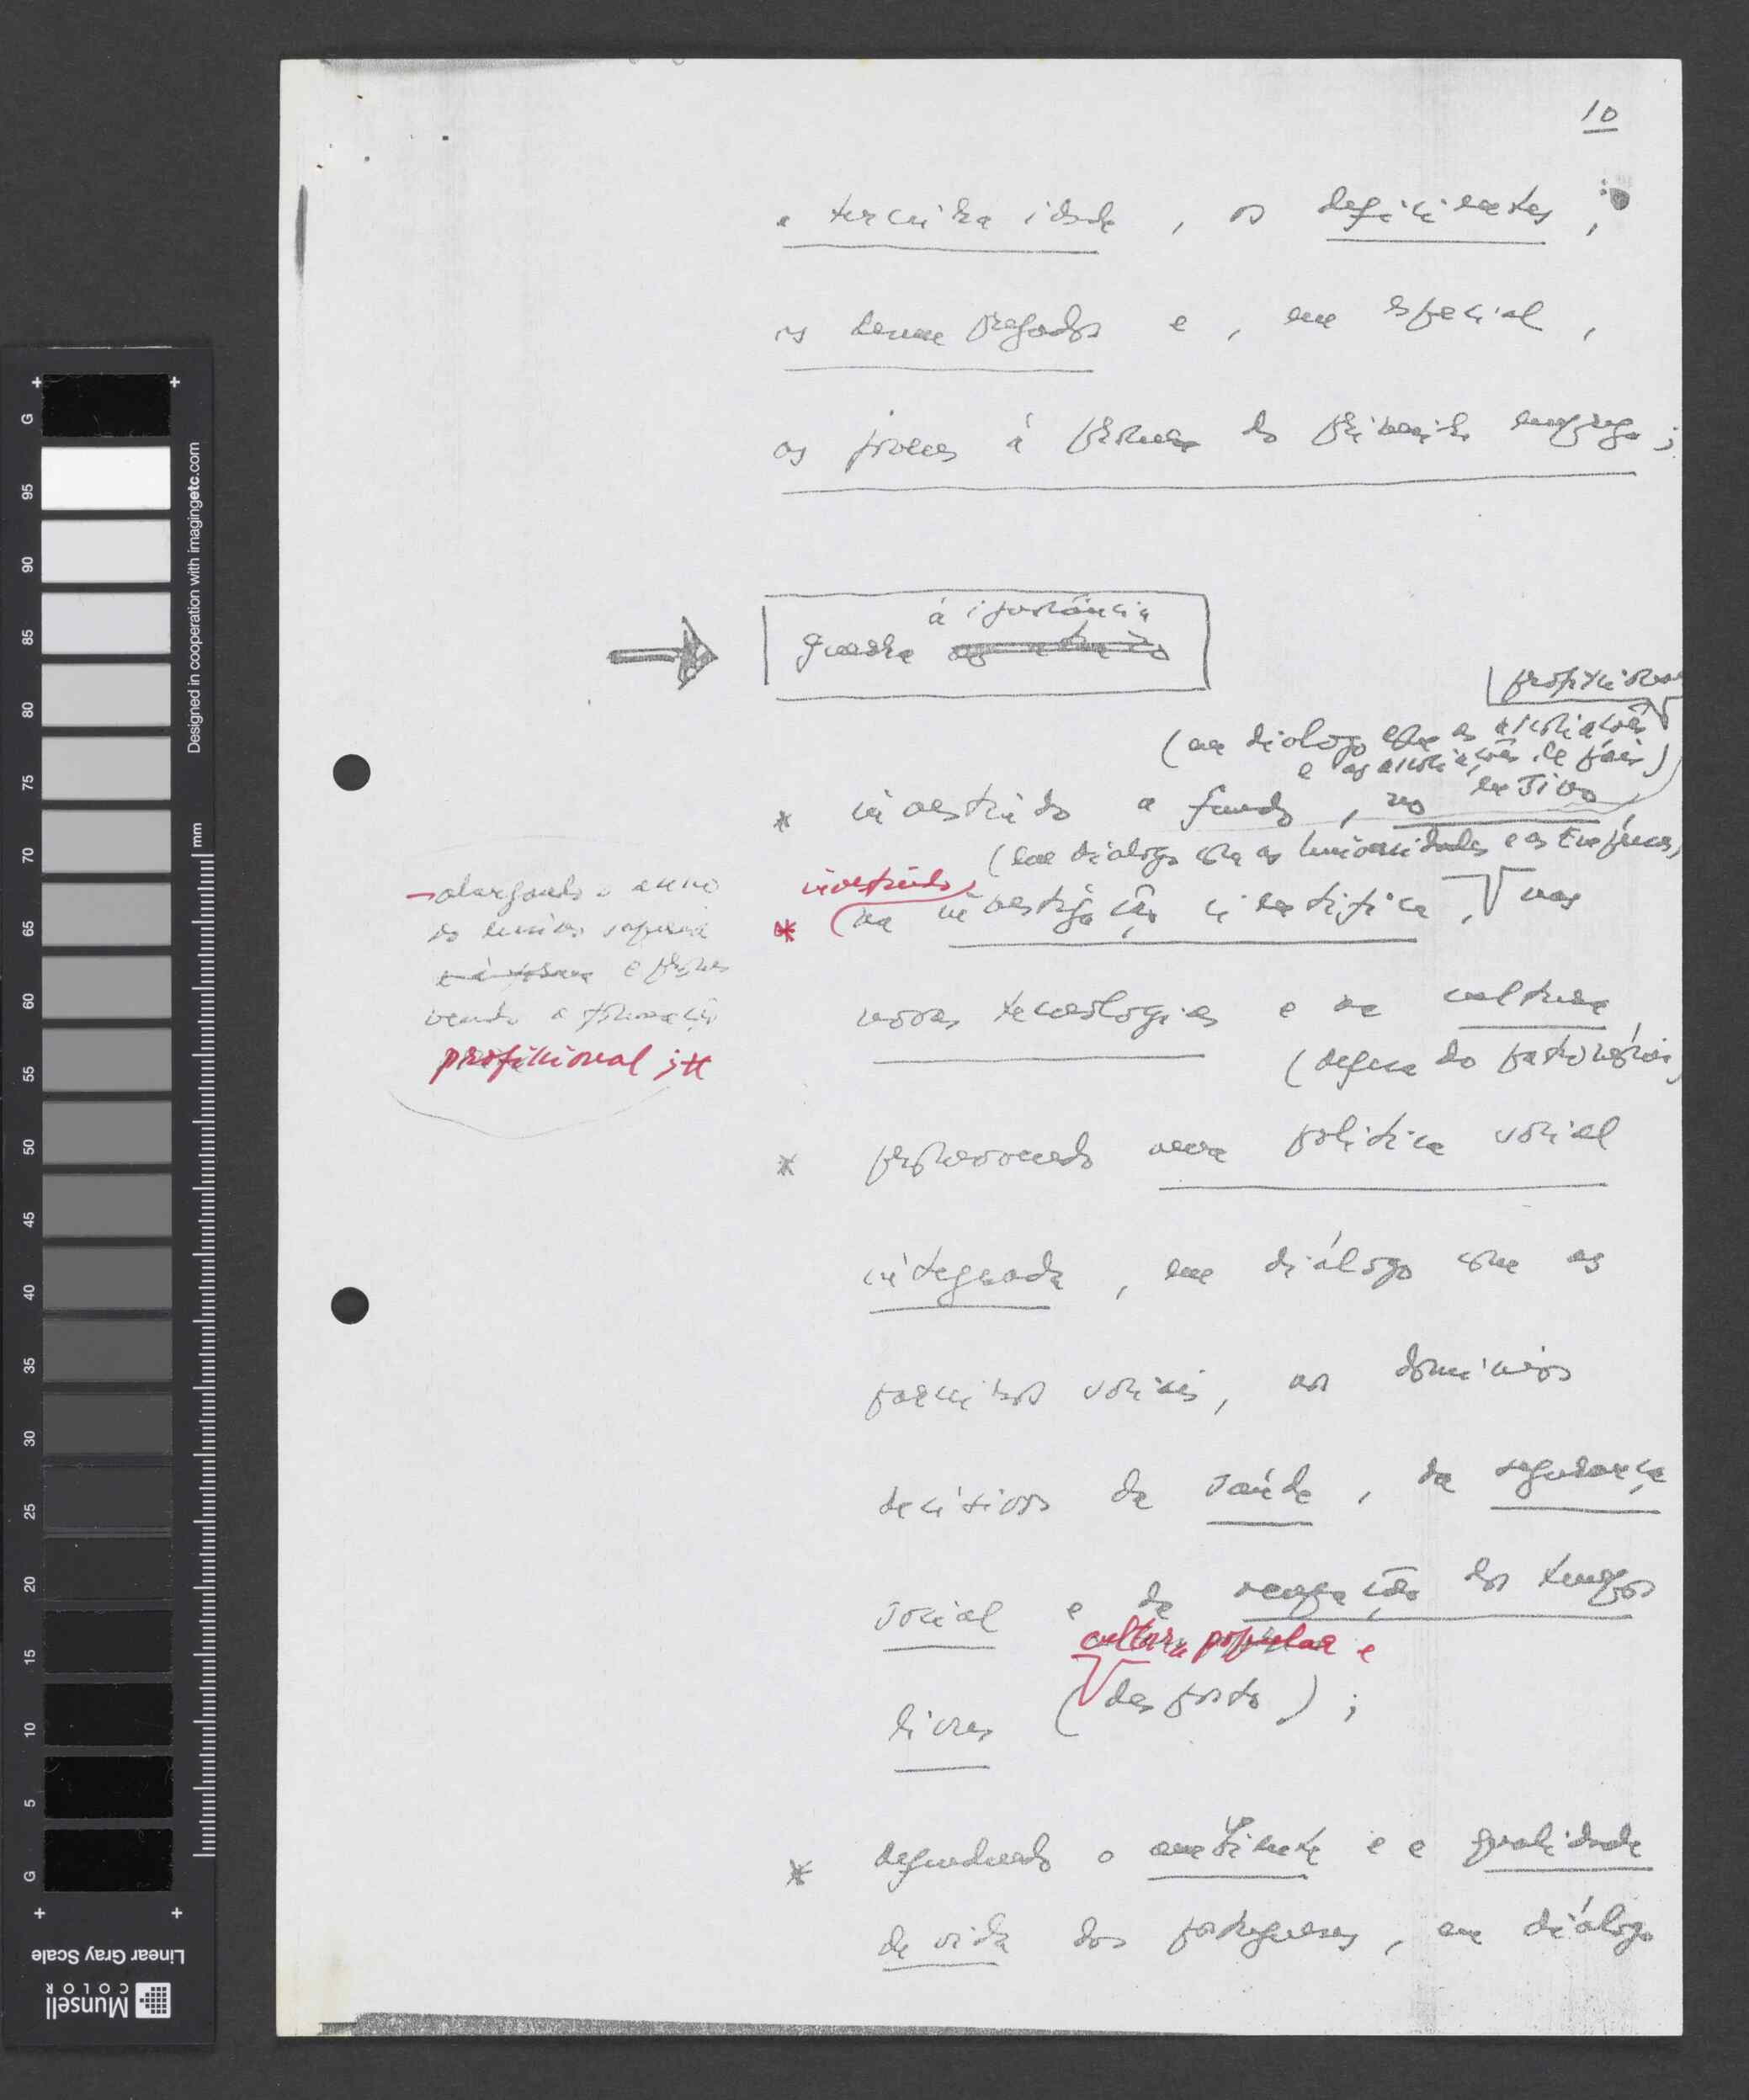 10
a terceira idade, os deficientes,
os desempregados e, em especial,
os jovens à procura do primeiro emprego;
à ignorância
guerra
profissionais
(em diálogo com as associações
e as associações de pais)
* investindo a fundo, no ensino
(em diálogo com as Universidades e as Empresas)
investindo
* na investigação científica, nas
novas tecnologias e na cultura
(defesa do património)
→ alargando o acesso
do ensino superior
e promo
vendo a formação
profissional;
* promovendo uma política social
integrada, em diálogo com os
parceiros sociais, nos domínios
decisivos da saúde, da segurança
social e da ocupação dos tempos
cultura popular e
livres (desporto);
* defendendo o ambiente e a qualidade
de vida dos portugueses, em diálogo
Designed in cooperation with imagingetc.com
mm
G 95 90 85 80 75 70 65 60 55 50 45 40 35 30 25 20 15 10 5 G
Linear Gray Scale
Munsell
COLOR